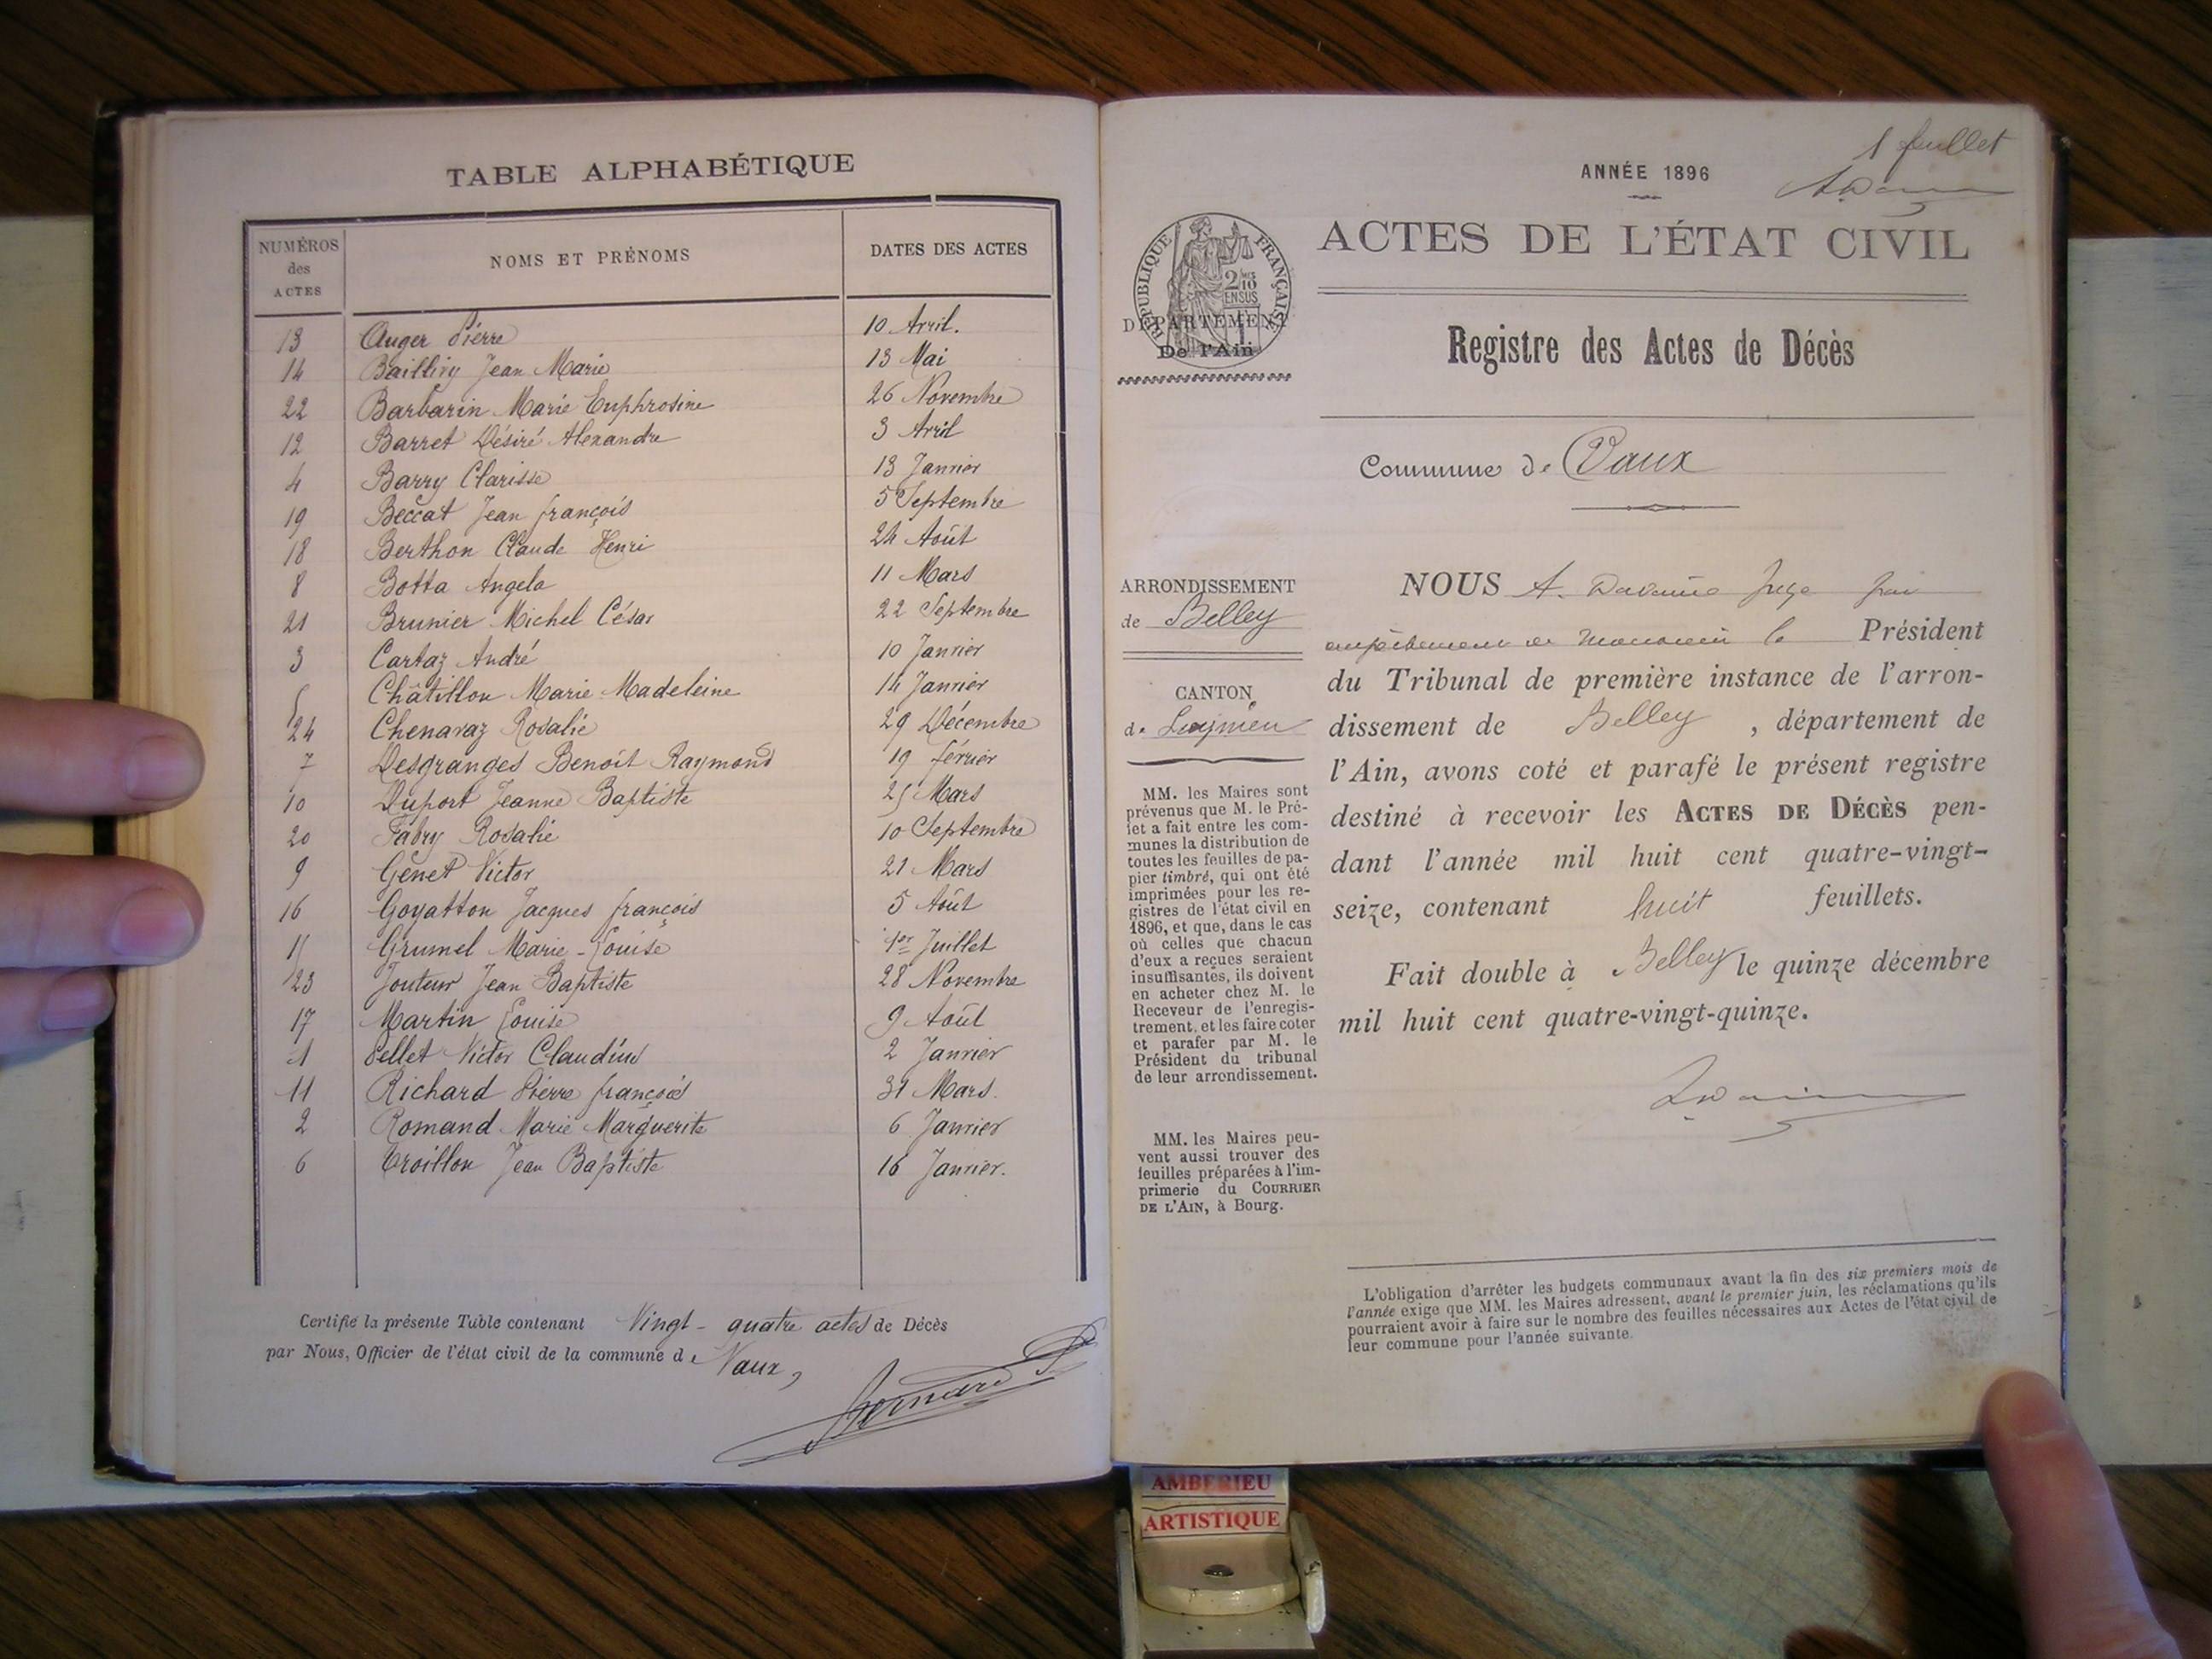 TABLE ALPHABÉTIQUE
NUMÉROS des ACTES NOMS ET PRÉNOMS DATES DES ACTES
13 Auger Pierre 10 Avril.
14 Bailliry Jean Marie 13 Mai
22 Barbarin Marie Euphrosine 26 Novembre
12 Barret Désiré Alexandre 3 Avril
4 Barry Clarisse 13 Janvier
19 Beccat Jean François 5 Septembre
18 Berthon Claude Henri 24 Août
8 Botta Angela 11 Mars
21 Brunier Michel César 22 Septembre
3 Cartaz André 10 Janvier
5 Châtillon Marie Madeleine 14 Janvier
24 Chenavaz Rosalie 29 Décembre
7 Desgranges Benoît Raymond 19 Février
10 Duport Jeanne Baptiste 25 Mars
20 Fabry Rosalie 10 Septembre
9 Génet Victor 21 Mars
16 Goyatton Jacques François 5 Août
15 Grumel Marie-Louise 1er Juillet
23 Jouteur Jean Baptiste 28 Novembre
17 Martin Louise 9 Août
1 Pellet Victor Claudius 2 Janvier
11 Richard Pierre François 31 Mars.
2 Romand Marie Marguerite 6 Janvier
6 Troillon Jean Baptiste 16 Janvier.
Certifié la présente Table contenant Vingt-quatre actes de Décès
par Nous, Officier de l'état civil de la commune de Vaux,
1 feuillet
ANNÉE 1896
ACTES DE L'ÉTAT CIVIL
RÉPUBLIQUE FRANÇAISE
2/10 EN SUS
DÉPARTEMENT
De l'Ain
Registre des Actes de Décès
Commune de Vaux
ARRONDISSEMENT
de Belley
CANTON
de Lagnieu
MM. les Maires sont
prévenus que M. le Pré-
fet a fait entre les com-
munes la distribution de
toutes les feuilles de pa-
pier timbré, qui ont été
imprimées pour les re-
gistres de l'état civil en
1896, et que, dans le cas
où celles que chacun
d'eux a reçues seraient
insuffisantes, ils doivent
en acheter chez M. le
Receveur de l'enregis-
trement, et les faire coter
et parafer par M. le
Président du tribunal
de leur arrondissement.
MM. les Maires peu-
vent aussi trouver des
feuilles préparées à l'im-
primerie du COURRIER
DE L'AIN, à Bourg.
NOUS A. Juge par
empêchement de Monsieur le Président
du Tribunal de première instance de l'arron-
dissement de Belley, département de
l'Ain, avons coté et parafé le présent registre
destiné à recevoir les ACTES DE DÉCÈS pen-
dant l'année mil huit cent quatre-vingt-
seize, contenant huit feuillets.
Fait double à Belley le quinze décembre
mil huit cent quatre-vingt-quinze.
L'obligation d'arrêter les budgets communaux avant la fin des six premiers mois de
l'année exige que MM. les Maires adressent, avant le premier juin, les réclamations qu'ils
pourraient avoir à faire sur le nombre des feuilles nécessaires aux Actes de l'état civil de
leur commune pour l'année suivante.
AMBERIEU
ARTISTIQUE